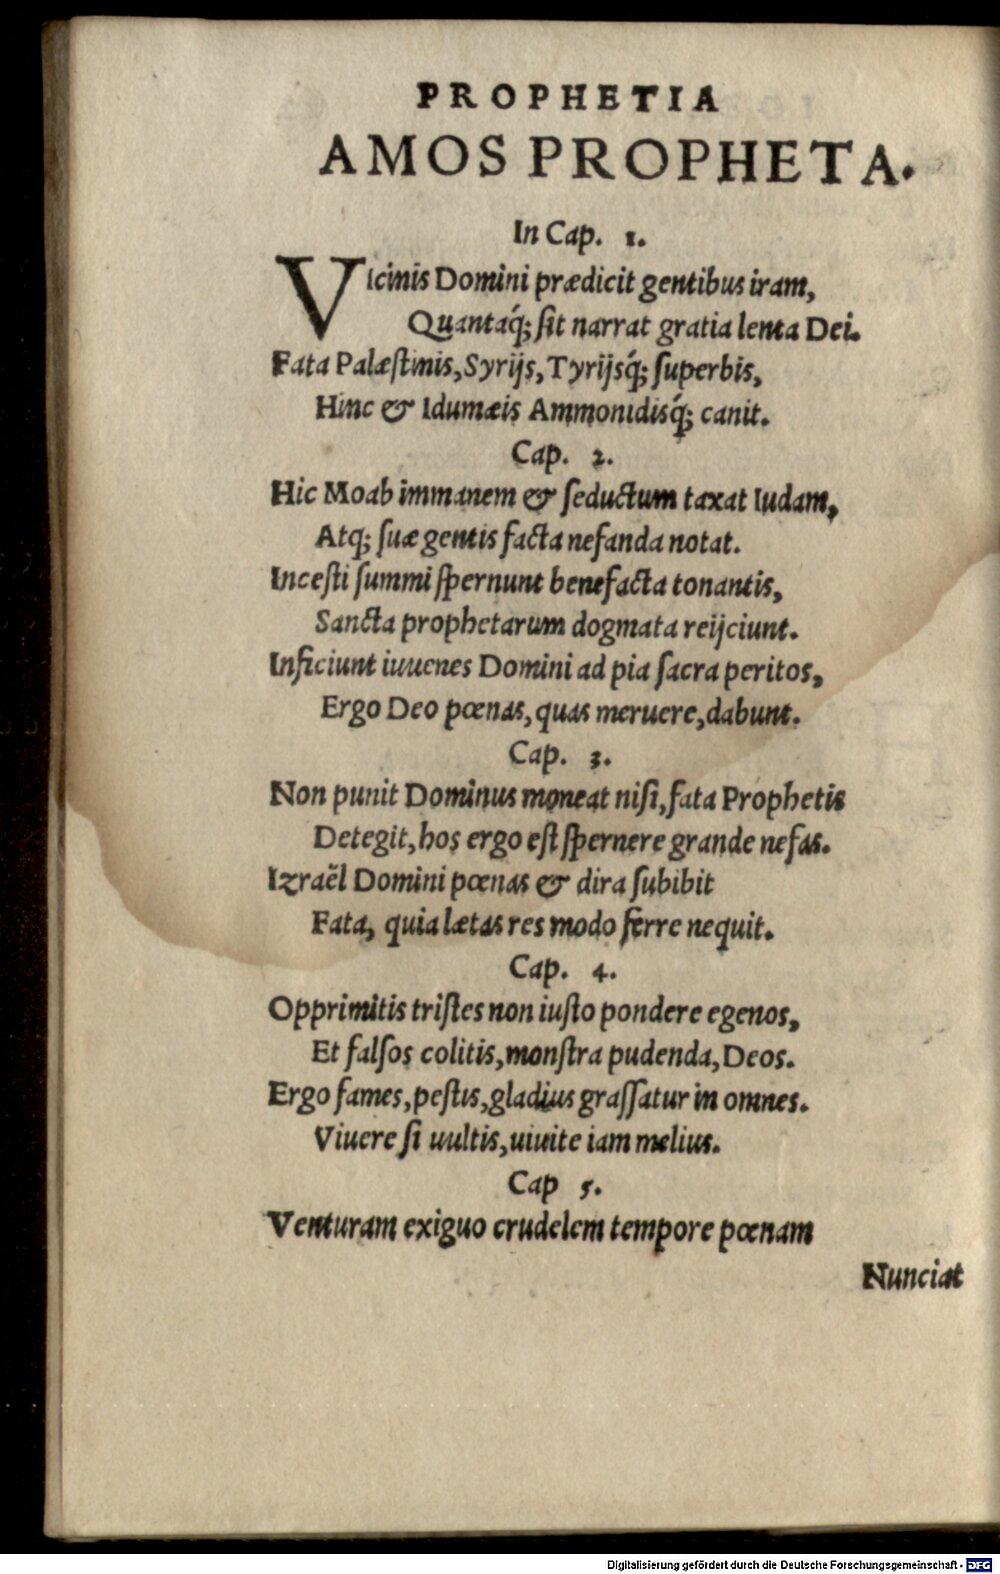 PROPHETIA
AMOS PROPHETA.
In Cap. 1.
VIcinis Domini prædicit gentibus iram,
Quantaq́; ſit narrat gratia lenta Dei.
Fata Palæſtinis, Syrijs, Tyrijsq́; ſuperbis,
Hinc & Idumæis Ammonidisq́; canit.
Cap. 2.
Hic Moab immanem & ſeductum taxat Iudam,
Atq; ſuæ gentis facta nefanda notat.
Inceſti ſummi ſpernunt benefacta tonantis,
Sancta prophetarum dogmata reijciunt.
Inficiunt iuuenes Domini ad pia ſacra peritos,
Ergo Deo pœnas, quas meruere, dabunt.
Cap. 3.
Non punit Dominus moneat niſi, fata Prophetis
Detegit, hos ergo eſt ſpernere grande nefas.
Izraël Domini pœnas & dira ſubibit
Fata, quia lætas res modo ferre nequit.
Cap. 4.
Opprimitis triſtes non iuſto pondere egenos,
Et falſos colitis, monſtra pudenda, Deos.
Ergo fames, peſtis, gladius graſſatur in omnes.
Viuere ſi uultis, uiuite iam melius.
Cap 5.
Venturam exiguo crudelem tempore pœnam
Nunciat
Digitalisierung gefördert durch die Deutsche Forschungsgemeinschaft - DFG